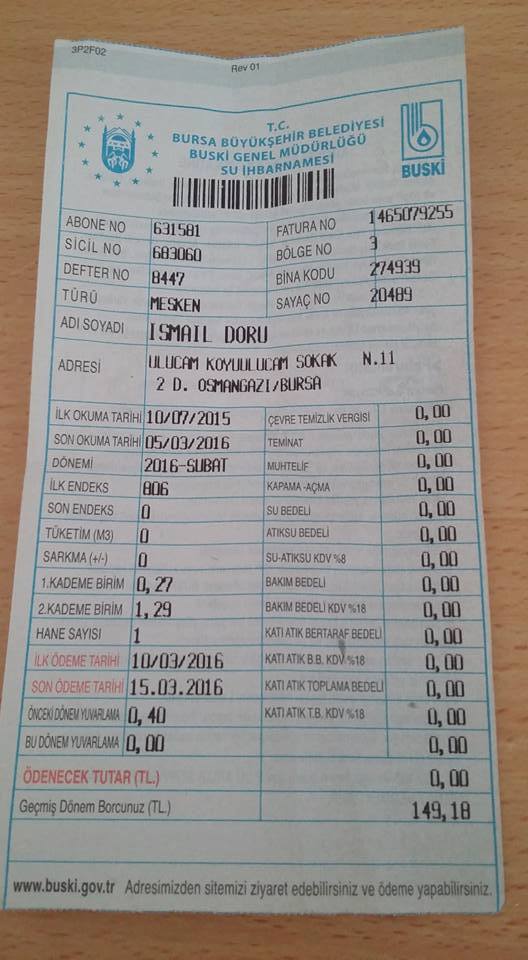 3P2F02
Rev 01
T.C.
BURSA BÜYÜKŞEHİR BELEDİYESİ
BUSKİ GENEL MÜDÜRLÜĞÜ
SU İHBARNAMESİ
BUSKİ
ABONE NO 631581 FATURA NO 1465079255
SİCİL NO 683060 BÖLGE NO 3
DEFTER NO 8447 BİNA KODU 274939
TÜRÜ MESKEN SAYAÇ NO 20489
ADI SOYADI ISMAIL DORU
ADRESİ ULUCAM KOYUULUCAM SOKAK N.11
2 D. OSMANGAZI/BURSA
İLK OKUMA TARİHİ 10/07/2015 ÇEVRE TEMİZLİK VERGİSİ 0,00
SON OKUMA TARİHİ 05/03/2016 TEMİNAT 0,00
DÖNEMİ 2016-SUBAT MUHTELİF 0,00
İLK ENDEKS 806 KAPAMA -AÇMA 0,00
SON ENDEKS 0 SU BEDELİ 0,00
TÜKETİM (M3) 0 ATIKSU BEDELİ 0,00
SARKMA (+/-) 0 SU-ATIKSU KDV %8 0,00
1.KADEME BİRİM 0,27 BAKIM BEDELİ 0,00
2.KADEME BİRİM 1,29 BAKIM BEDELİ KDV %18 0,00
HANE SAYISI 1 KATI ATIK BERTARAF BEDELİ 0,00
İLK ÖDEME TARİHİ 10/03/2016 KATI ATIK B.B. KDV %18 0,00
SON ÖDEME TARİHİ 15.03.2016 KATI ATIK TOPLAMA BEDELİ 0,00
ÖNCEKİ DÖNEM YUVARLAMA 0,40 KATI ATIK T.B. KDV %18 0,00
BU DÖNEM YUVARLAMA 0,00 0,00
ÖDENECEK TUTAR (TL.) 0,00
Geçmiş Dönem Borcunuz (TL.) 149,18
www.buski.gov.tr Adresimizden sitemizi ziyaret edebilirsiniz ve ödeme yapabilirsiniz.